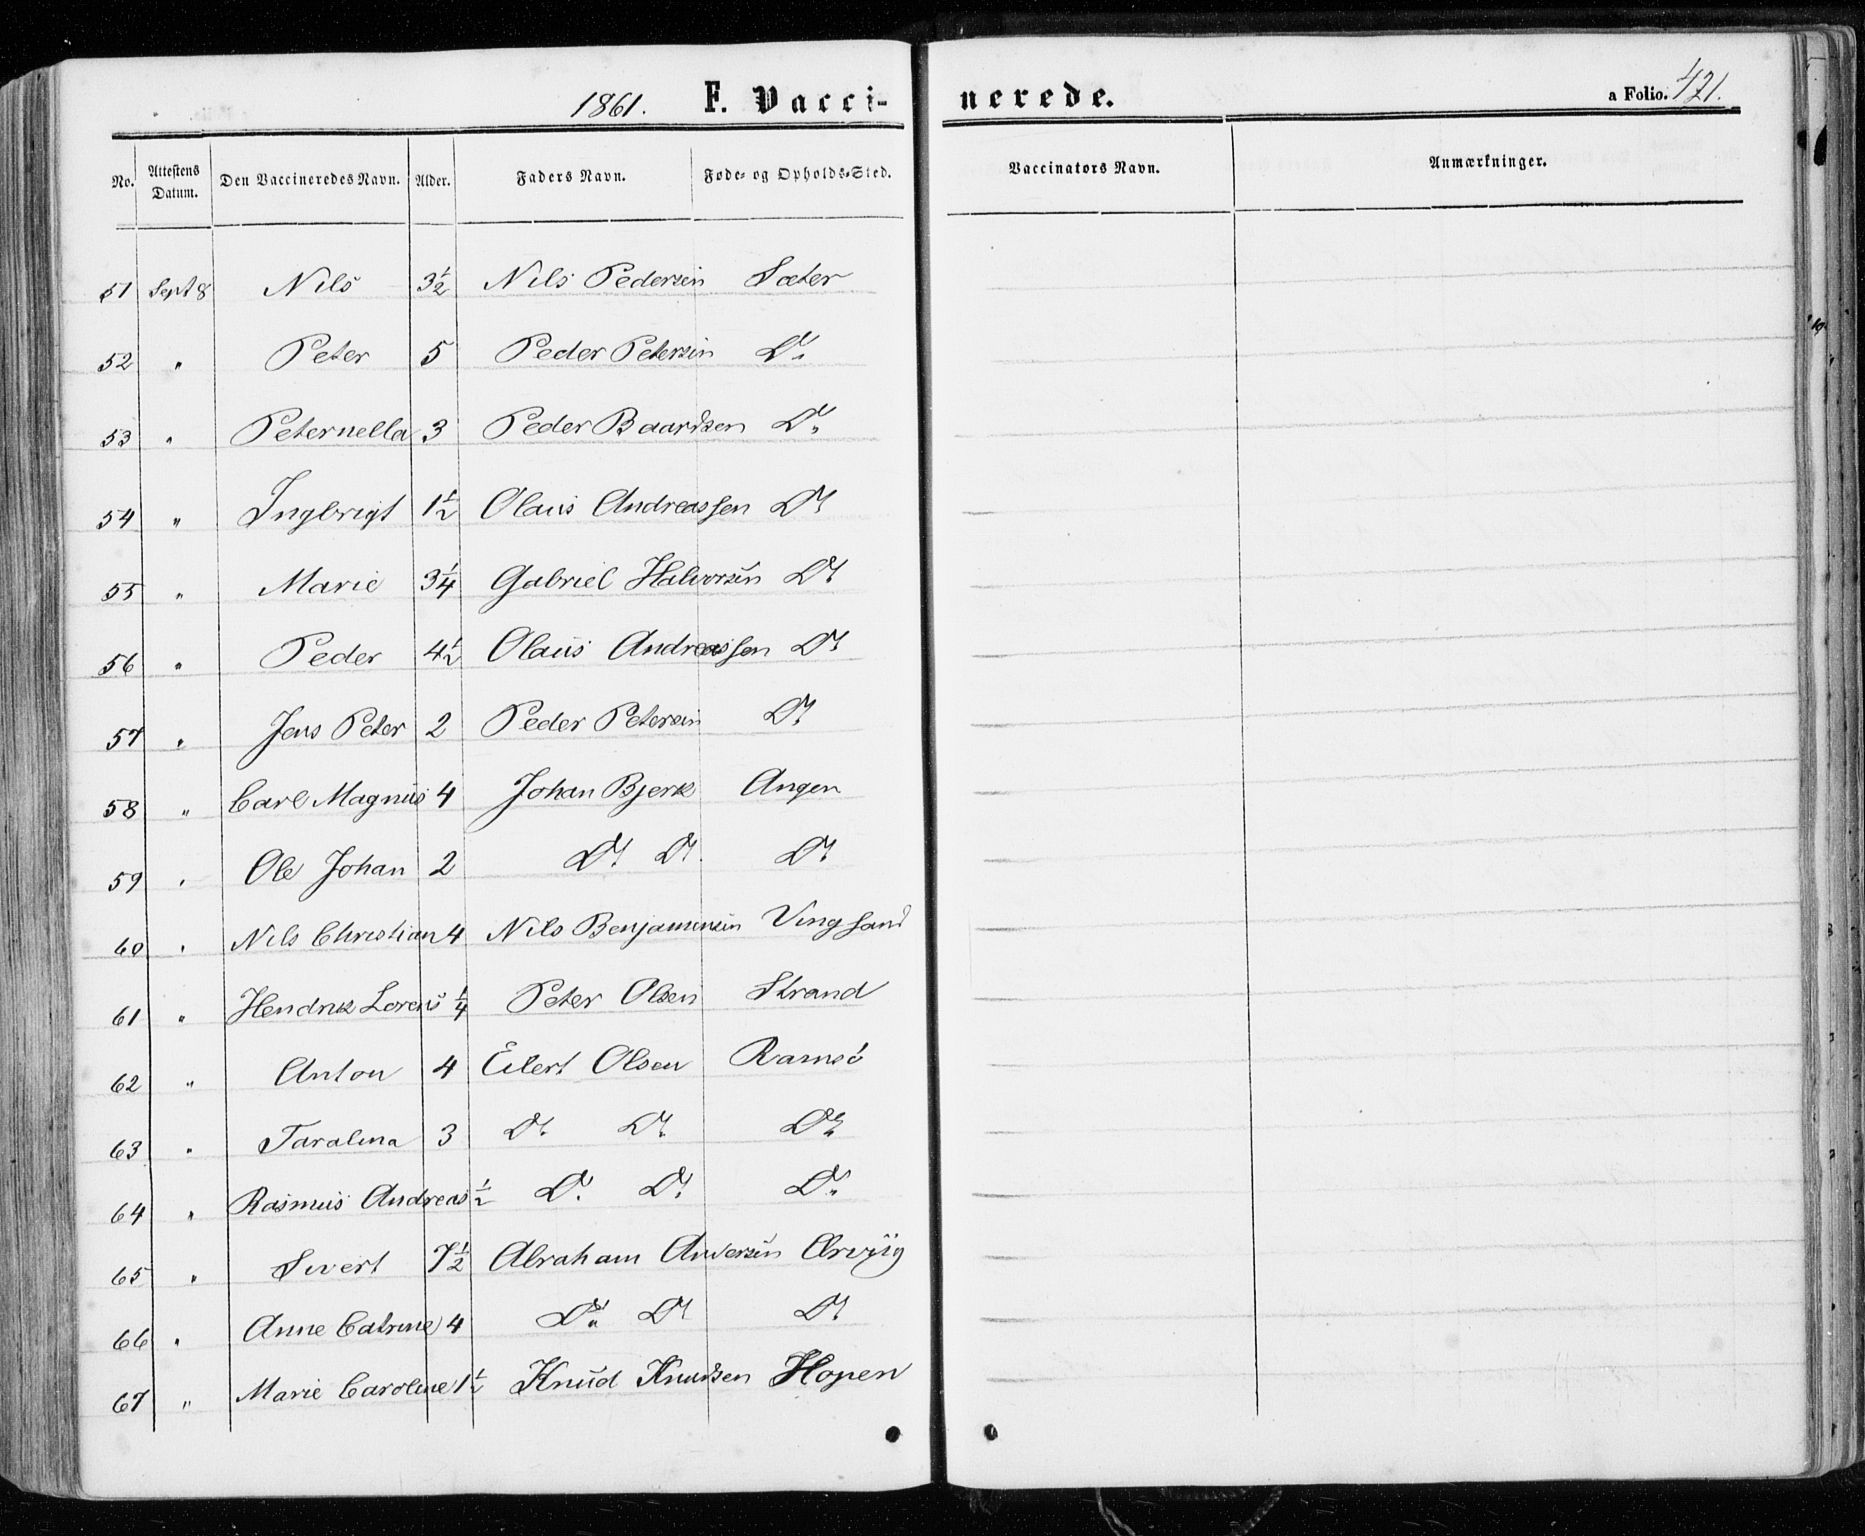 1861. F. Vacci- nerede. a Folio. 421.
No. Attestens Datum. Den Vaccineredes Navn. Alder. Faders Navn. Føde- og Opholds-Sted. Vaccinators Navn. Anmærkninger.
51 Sept 8 Nils 3½ Nils Pedersen Sæter
52 " Peter 5 Peder Petersen Do
53 " Peternella 3 Peder Baardsen Do
54 " Ingbrigt 1½ Olaus Andreassen Do
55 " Marie 3¼ Gabriel Halvorsen Do
56 " Peder 4½ Olaus Andreassen Do
57 " Jens Peter 2 Peder Petersen Do
58 " Carl Magnus 4 Johan Bjerk Angen
59 " Ole Johan 2 Do Do Do
60 " Nils Christian 4 Nils Benjaminsen Vingsand
61 " Hendrik Lorens ¼ Peter Olsen Strand
62 " Anton 4 Eilert Olsen Ramsø
63 " Taralina 3 Do Do Do
64 " Rasmus Andreas ½ Do Do Do
65 " Sivert 7½ Abraham Andersen Erviig
66 " Anne Catrine 4 Do Do Do
67 " Marie Caroline 1½ Knud Knudsen Hopen